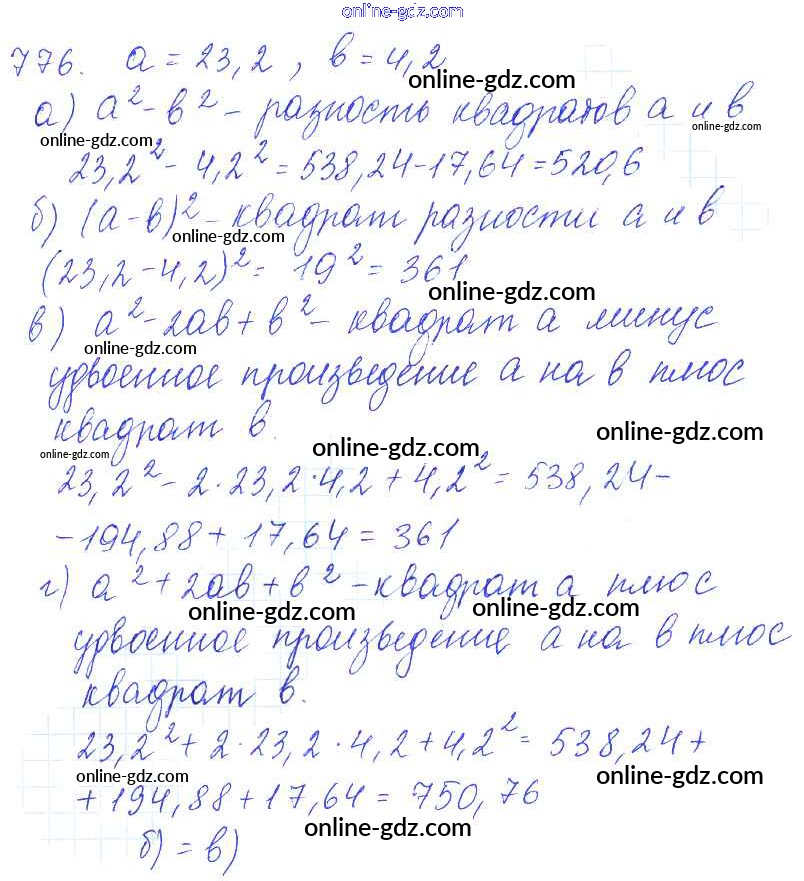 online-gdz.com
776. a = 23,2 , в = 4,2
online-gdz.com
а) a² - в² - разность квадратов а и в
online-gdz.com online-gdz.com
23,2² - 4,2² = 538,24 - 17,64 = 520,6
б) (а - в)² - квадрат разности а и в
online-gdz.com
(23,2 - 4,2)² = 19² = 361
online-gdz.com
в) a² - 2ав + в² - квадрат а минус
online-gdz.com
удвоенное произведение а на в плюс
квадрат в.
online-gdz.com online-gdz.com online-gdz.com
23,2² - 2 · 23,2 · 4,2 + 4,2² = 538,24 -
- 194,88 + 17,64 = 361
г) a² + 2ав + в² - квадрат а плюс
online-gdz.com online-gdz.com
удвоенное произведение а на в плюс
квадрат в.
23,2² + 2 · 23,2 · 4,2 + 4,2² = 538,24 +
online-gdz.com online-gdz.com
+ 194,88 + 17,64 = 750,76
online-gdz.com
б) = в)